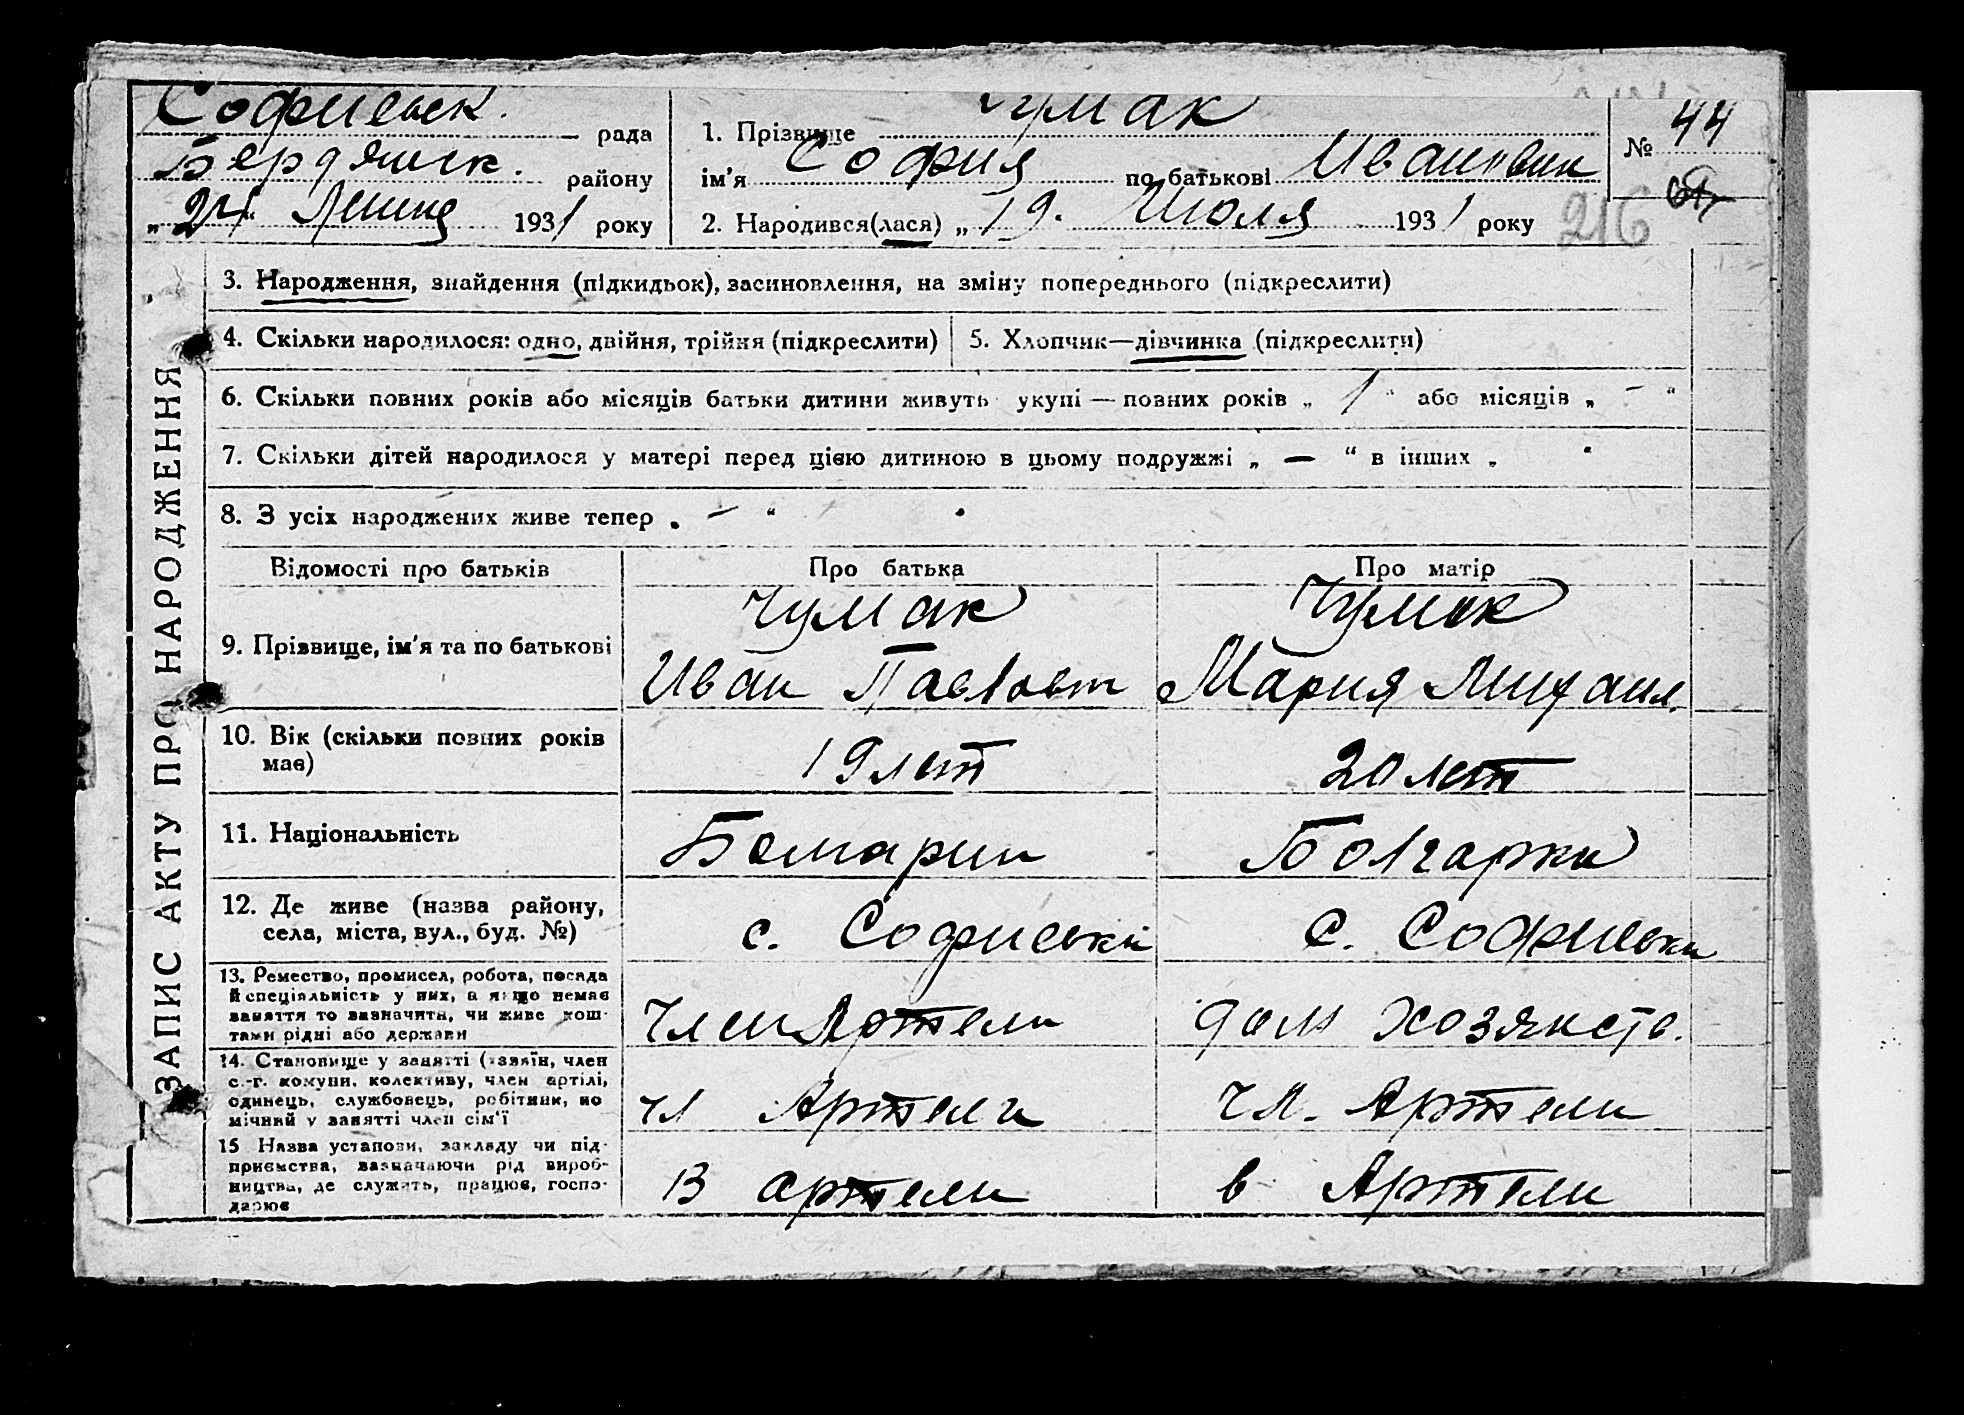 Софиевск. рада
Бердянск. району
„24“ Липня 1931 року
1. Прізвище Чумак
ім'я София по батькові Ивановна
2. Народився(лася) „19. Июля 1931 року
№ 44
216
ЗАПИС АКТУ ПРО НАРОДЖЕННЯ
3. Народження, знайдення (підкидьок), засиновлення, на зміну попереднього (підкреслити)
4. Скільки народилося: одно, двійня, трійня (підкреслити)
5. Хлопчик—дівчинка (підкреслити)
6. Скільки повних років або місяців батьки дитини живуть укупі — повних років „ 1 “ або місяців „ – “
7. Скільки дітей народилося у матері перед цією дитиною в цьому подружжі „ — “ в інших „
8. З усіх народжених живе тепер „ – “
Відомості про батьків Про батька Про матір
9. Прізвище, ім'я та по батькові
Чумак
Иван Павлов
Чумак
Мария Михаил.
10. Вік (скільки повних років
має)
19 лет
20 лет
11. Національність
Болгарин
Болгарка
12. Де живе (назва району,
села, міста, вул., буд. №)
с. Софиевка
с. Софиевка
13. Ремество, промисел, робота, посада
й спеціяльність у них, а якщо немає
заняття то зазначити, чи живе кош-
тами рідні або держави
Член Артели
дом хозяйств.
14. Становище у занятті (хазяїн, член
с.-г. комуни, колективу, член артілі,
одинець, службовець, робітник, по
мічний у занятті член сім'ї
чл Артели
чл. Артели
15 Назва установи, закладу чи під-
приємства, зазначаючи рід вироб-
ництва, де служить, працює, госпо-
дарює
В артели
в Артели